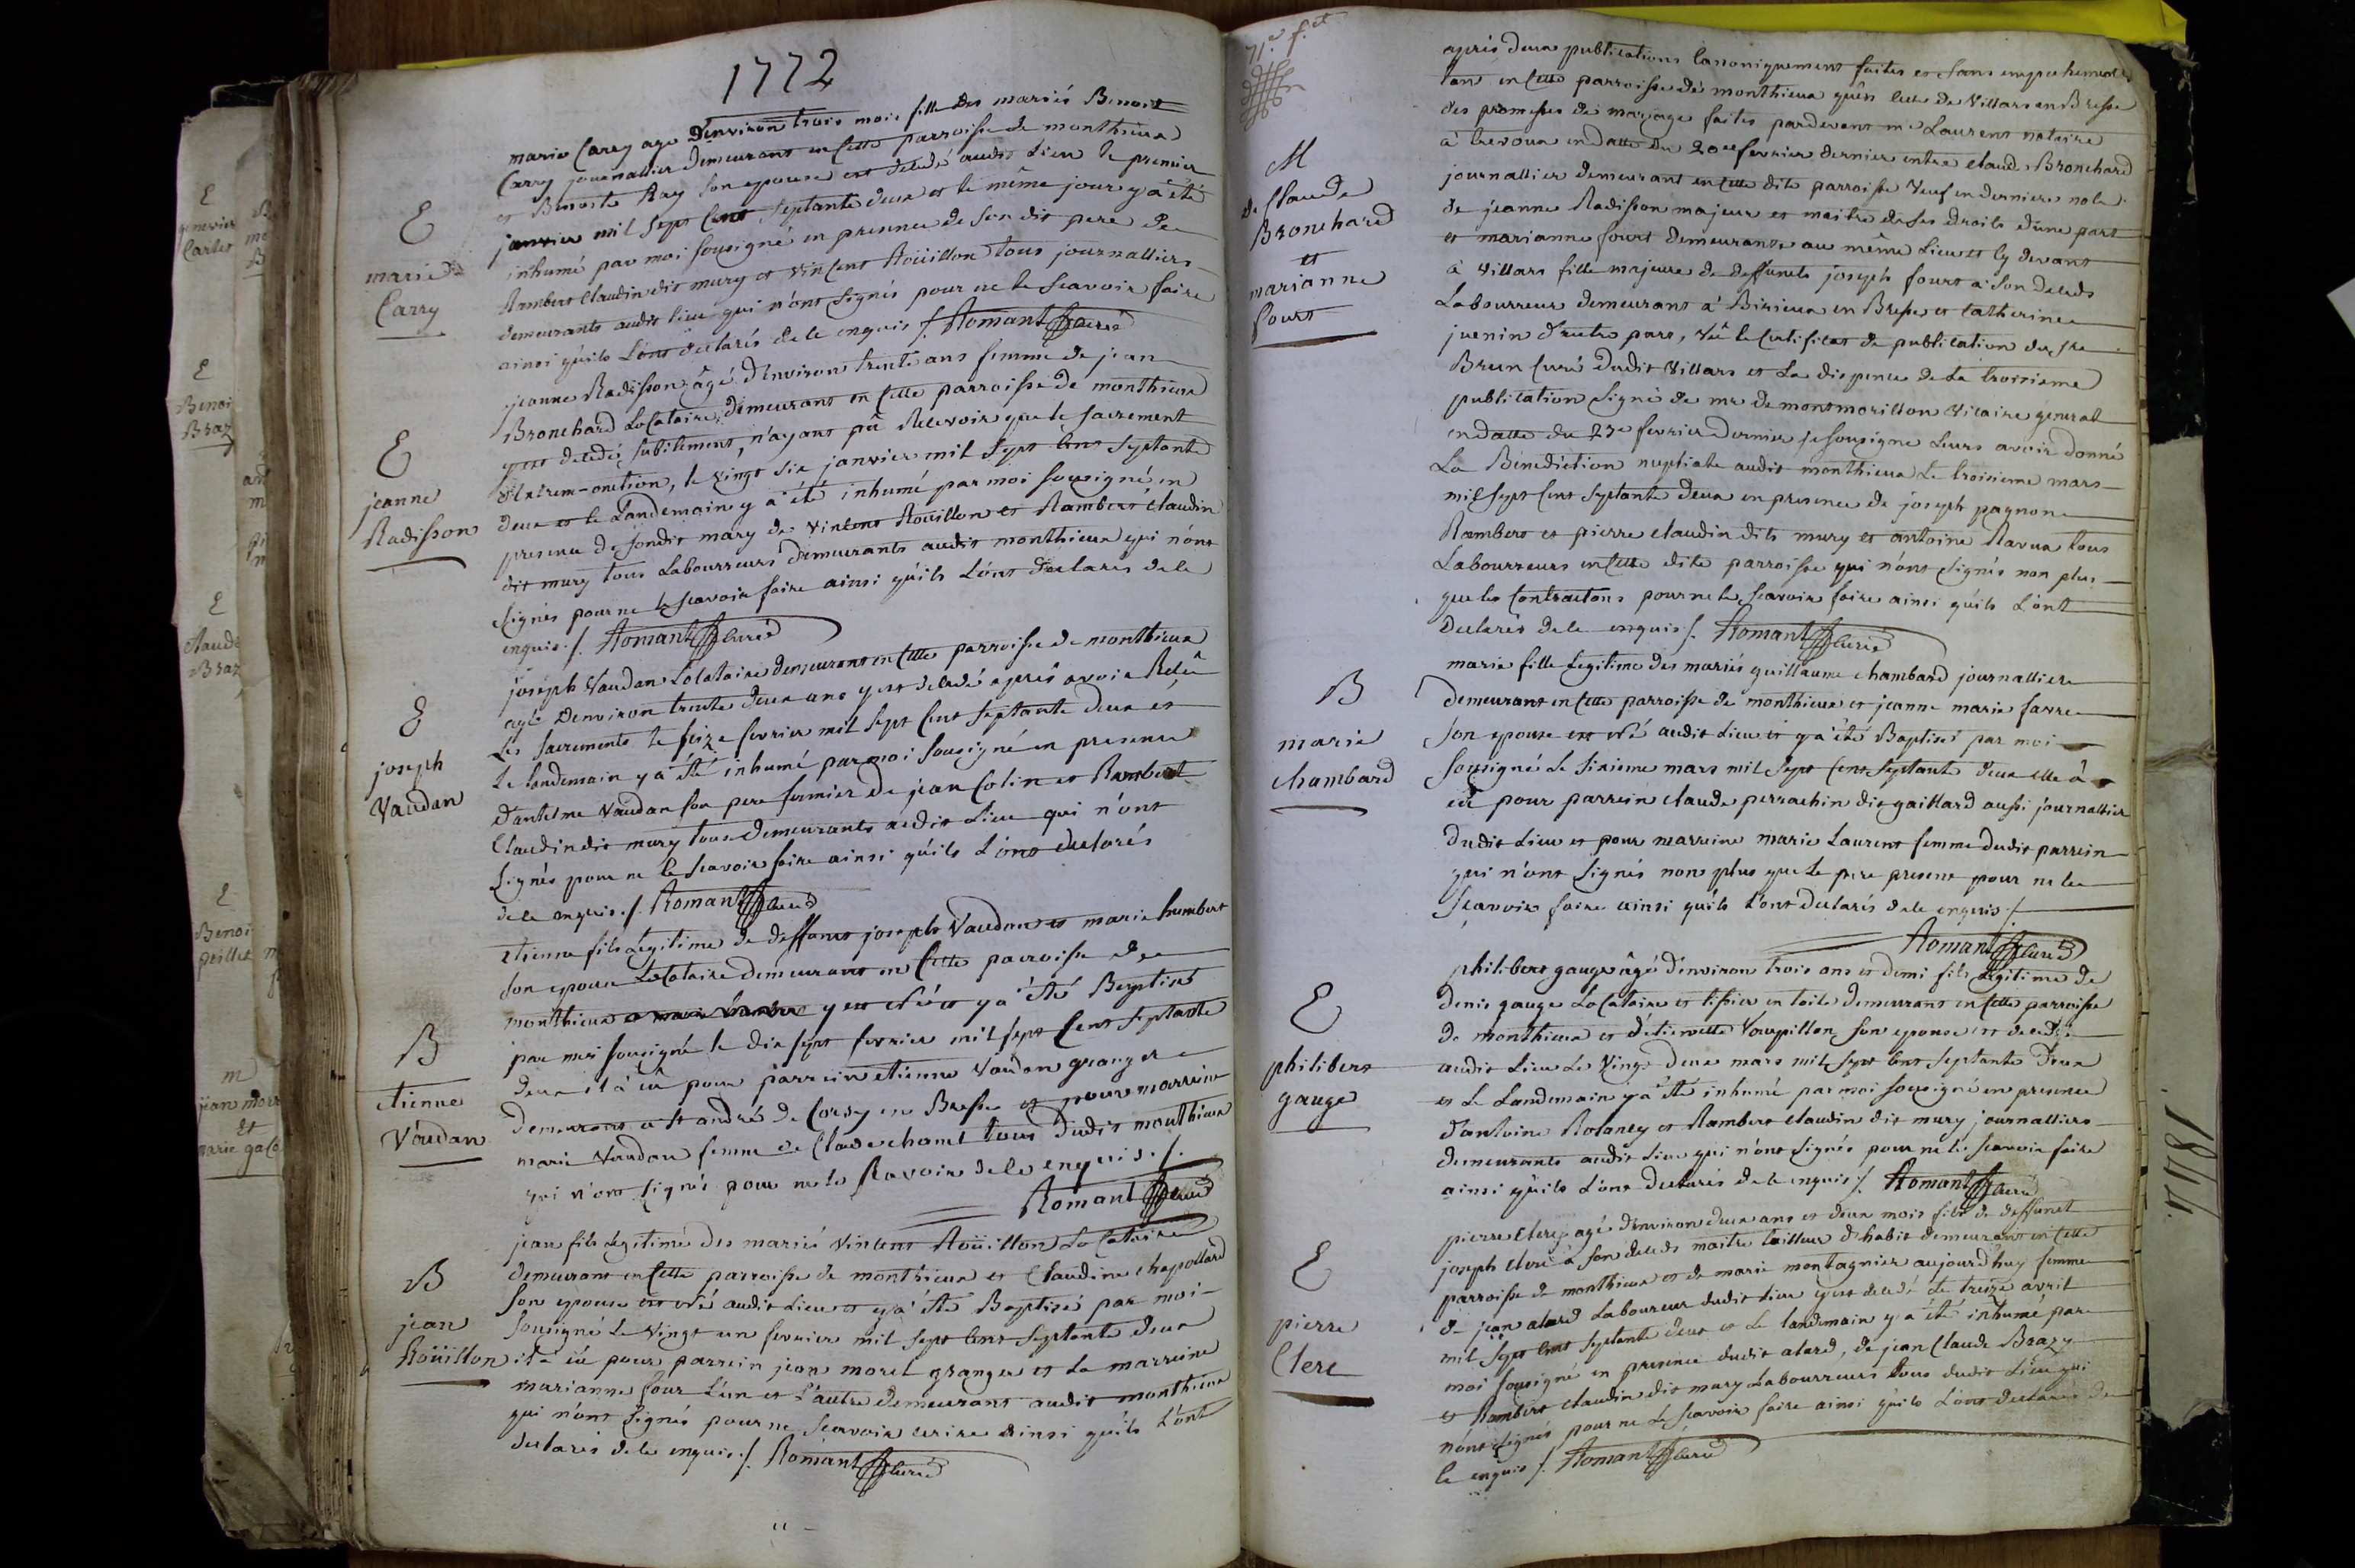 1772
marie Carry age d'environ trois mois fille des mariés Benoit
Carry journallier demeurant en cette parroisse de monthieux
et Benoite Ray son epouse est decedé audit Lieu le premier
janvier mil sept cent septante deux et le même jour y a été
inhumé par moi sousigné en presence de son dit pere de
Rambert Claudin dit mury et Vincent Roüillon tous journalliers
demeurants audit lieu qui n'ont signés pour ne le scavoir faire
ainsi qu'ils L'ont declarés de le enquis /. Romant curé
E
marie
Carry
jeanne Radisson âgé d'environ trente ans femme de jean
Bronchard Locataire demeurant en cette parroisse de monthieux
y est decedé subitement, n'ayant pû Recevoir que le sacrement
d'Extrem-onction, le vingt six janvier mil sept cent septante
deux et le Landemain y a été inhumé par moi sousigné en
presence de sondit mary de Vincent Roüillon et Rambert Claudin
dit mury tous Labourreurs demeurants audit monthieux qui n'ont
signés pour ne le scavoir faire ainsi qu'ils L'ont declarés de le
enquis /. Romant curé
E
jeanne
Radisson
joseph Vaudan Locataire demeurant en cette parroisse de monthieux
agé d'environ trente deux ans y est decedé après avoir Reçû
Les sacrements le seize fevrier mil sept cent septante deux et
Le landemain y a été inhumé par moi sousigné en presence
d'antelme Vaudan son pere fermier de jean Colin et Rambert
Claudin dit mury tous demeurants audit Lieu qui n'ont
signés pour ne le scavoir faire ainsi qu'ils L'ont declarés
de le enquis /. Romant curé
E
joseph
Vaudan
etienne fils Legitime de deffunct joseph Vaudan et marie humbert
son epouse Locataire demeurant en cette parroisse de
monthieux y est né et y a été Baptisé
par moi sousigné le dix sept fevrier mil sept cent septante
deux il a eû pour parrein etienne Vaudan granger
demeurant a st andré de Corsy en Bresse et pour marreine
marie Vaudan femme de Claude chanel tous dudit monthieux
qui n'ont signés pour ne le scavoir de le enquis /.
Romant curé
B
etienne
Vaudan
jean fils Legitime des mariés Vincent Roüillon Locataire
demeurant en cette parroisse de monthieux et Claudine chapollard
son epouse est né audit Lieu et y a été Baptisé par moi
sousigné Le Vingt un fevrier mil sept cent septante deux
il a eû pour parrein jean morel granger et La marreine
marianne four L'un et L'autre demeurant audit monthieux
qui n'ont signés pour ne scavoir ecrire ainsi qu'ils L'ont
declarés de le enquis /. Romant curé
B
jean
Roüillon
71e f.et
après deux publications Canoniquement faites et sans empechement
tant en cette parroisse de monthieux qu'en celle de Villars en Bresse
des promesses de mariage faites pardevant me Laurent notaire
à trevoux en datte du 20e fevrier dernier entre Claude Bronchard
journallier demeurant en cette dite parroisse Veuf en dernieres noces
de jeanne Radisson majeur et maitre de ses droits d'une part
et marianne fourt demeurante au même Lieu et cy devant
à Villars fille majeure de deffuncts joseph fourt à son deceds
Labourreur demeurant a Birieux en Bresse et Catherine
juenin d'autre part, vû le Certificat de publication du sr
Brun Curé dudit Villars et La dispence de La troisieme
publication signé de mr de montmorillon Vicaire general
en datte du 23e fevrier dernier je sousigne Leurs avoir donné
La Bénediction nuptiale audit monthieux Le troisieme mars
mil sept cent septante deux en presence de joseph pagnon
Rambert et pierre claudin dits mury et antoine Ravux tous
Labourreurs en cette dite parroisse qui n'ont signés non plus
que les Contractans pour ne le scavoir faire ainsi qu'ils L'ont
declarés de le enquis /. Romant curé
M
de Claude
Bronchard
et
marianne
fourt
marie fille Legitime des mariés guillaume chambard journallier
demeurant en cette parroisse de monthieux et jeanne marie favre
son epouse est né audit Lieu et y a été Baptisé par moi
sousigné Le sixieme mars mil sept cent septante deux elle â
eû pour parrein claude perrachin dit gaillard aussi journallier
dudit Lieu et pour marreine marie Laurent femme dudit parrein
qui n'ont signés non plus que Le pere present pour ne le
scavoir faire ainsi qu'ils L'ont declarés de le enquis /.
Romant curé
B
marie
chambard
philibert gauge âgé d'environ trois ans et demi fils Legitime de
denis gauge Locataire et tissier en toile demeurant en cette parroisse
de monthieux et d'etiennette Voupillon son epouse est decedé
audit Lieu Le Vingt deux mars mil sept cent septante deux
et Le Landemain y a été inhumé par moi sousigné en presence
d'antoine Rolancy et Rambert claudin dit mury journalliers
demeurants audit Lieu qui n'ont signés pour ne le scavoir faire
ainsi qu'ils L'ont declarés de le enquis /. Romant curé
E
philibert
gauge
pierre Clerc agé d'environ deux ans et deux mois fils de deffunct
joseph Clerc à son deceds maitre tailleur d'habit demeurant en cette
parroisse de monthieux et de marie montagnier aujourd'huy femme
de jean alard Laboureur dudit Lieu y est decedé Le treize avril
mil sept cent septante deux et Le landemain y a été inhumé par
moi sousigné en presence dudit alard, de jean Claude Brazy
et Rambert claudin dit mury Labourreurs tous dudit Lieu qui
n'ont signés pour ne Le scavoir faire ainsi qu'ils L'ont declarés de
le enquis /. Romant curé
E
pierre
Clerc